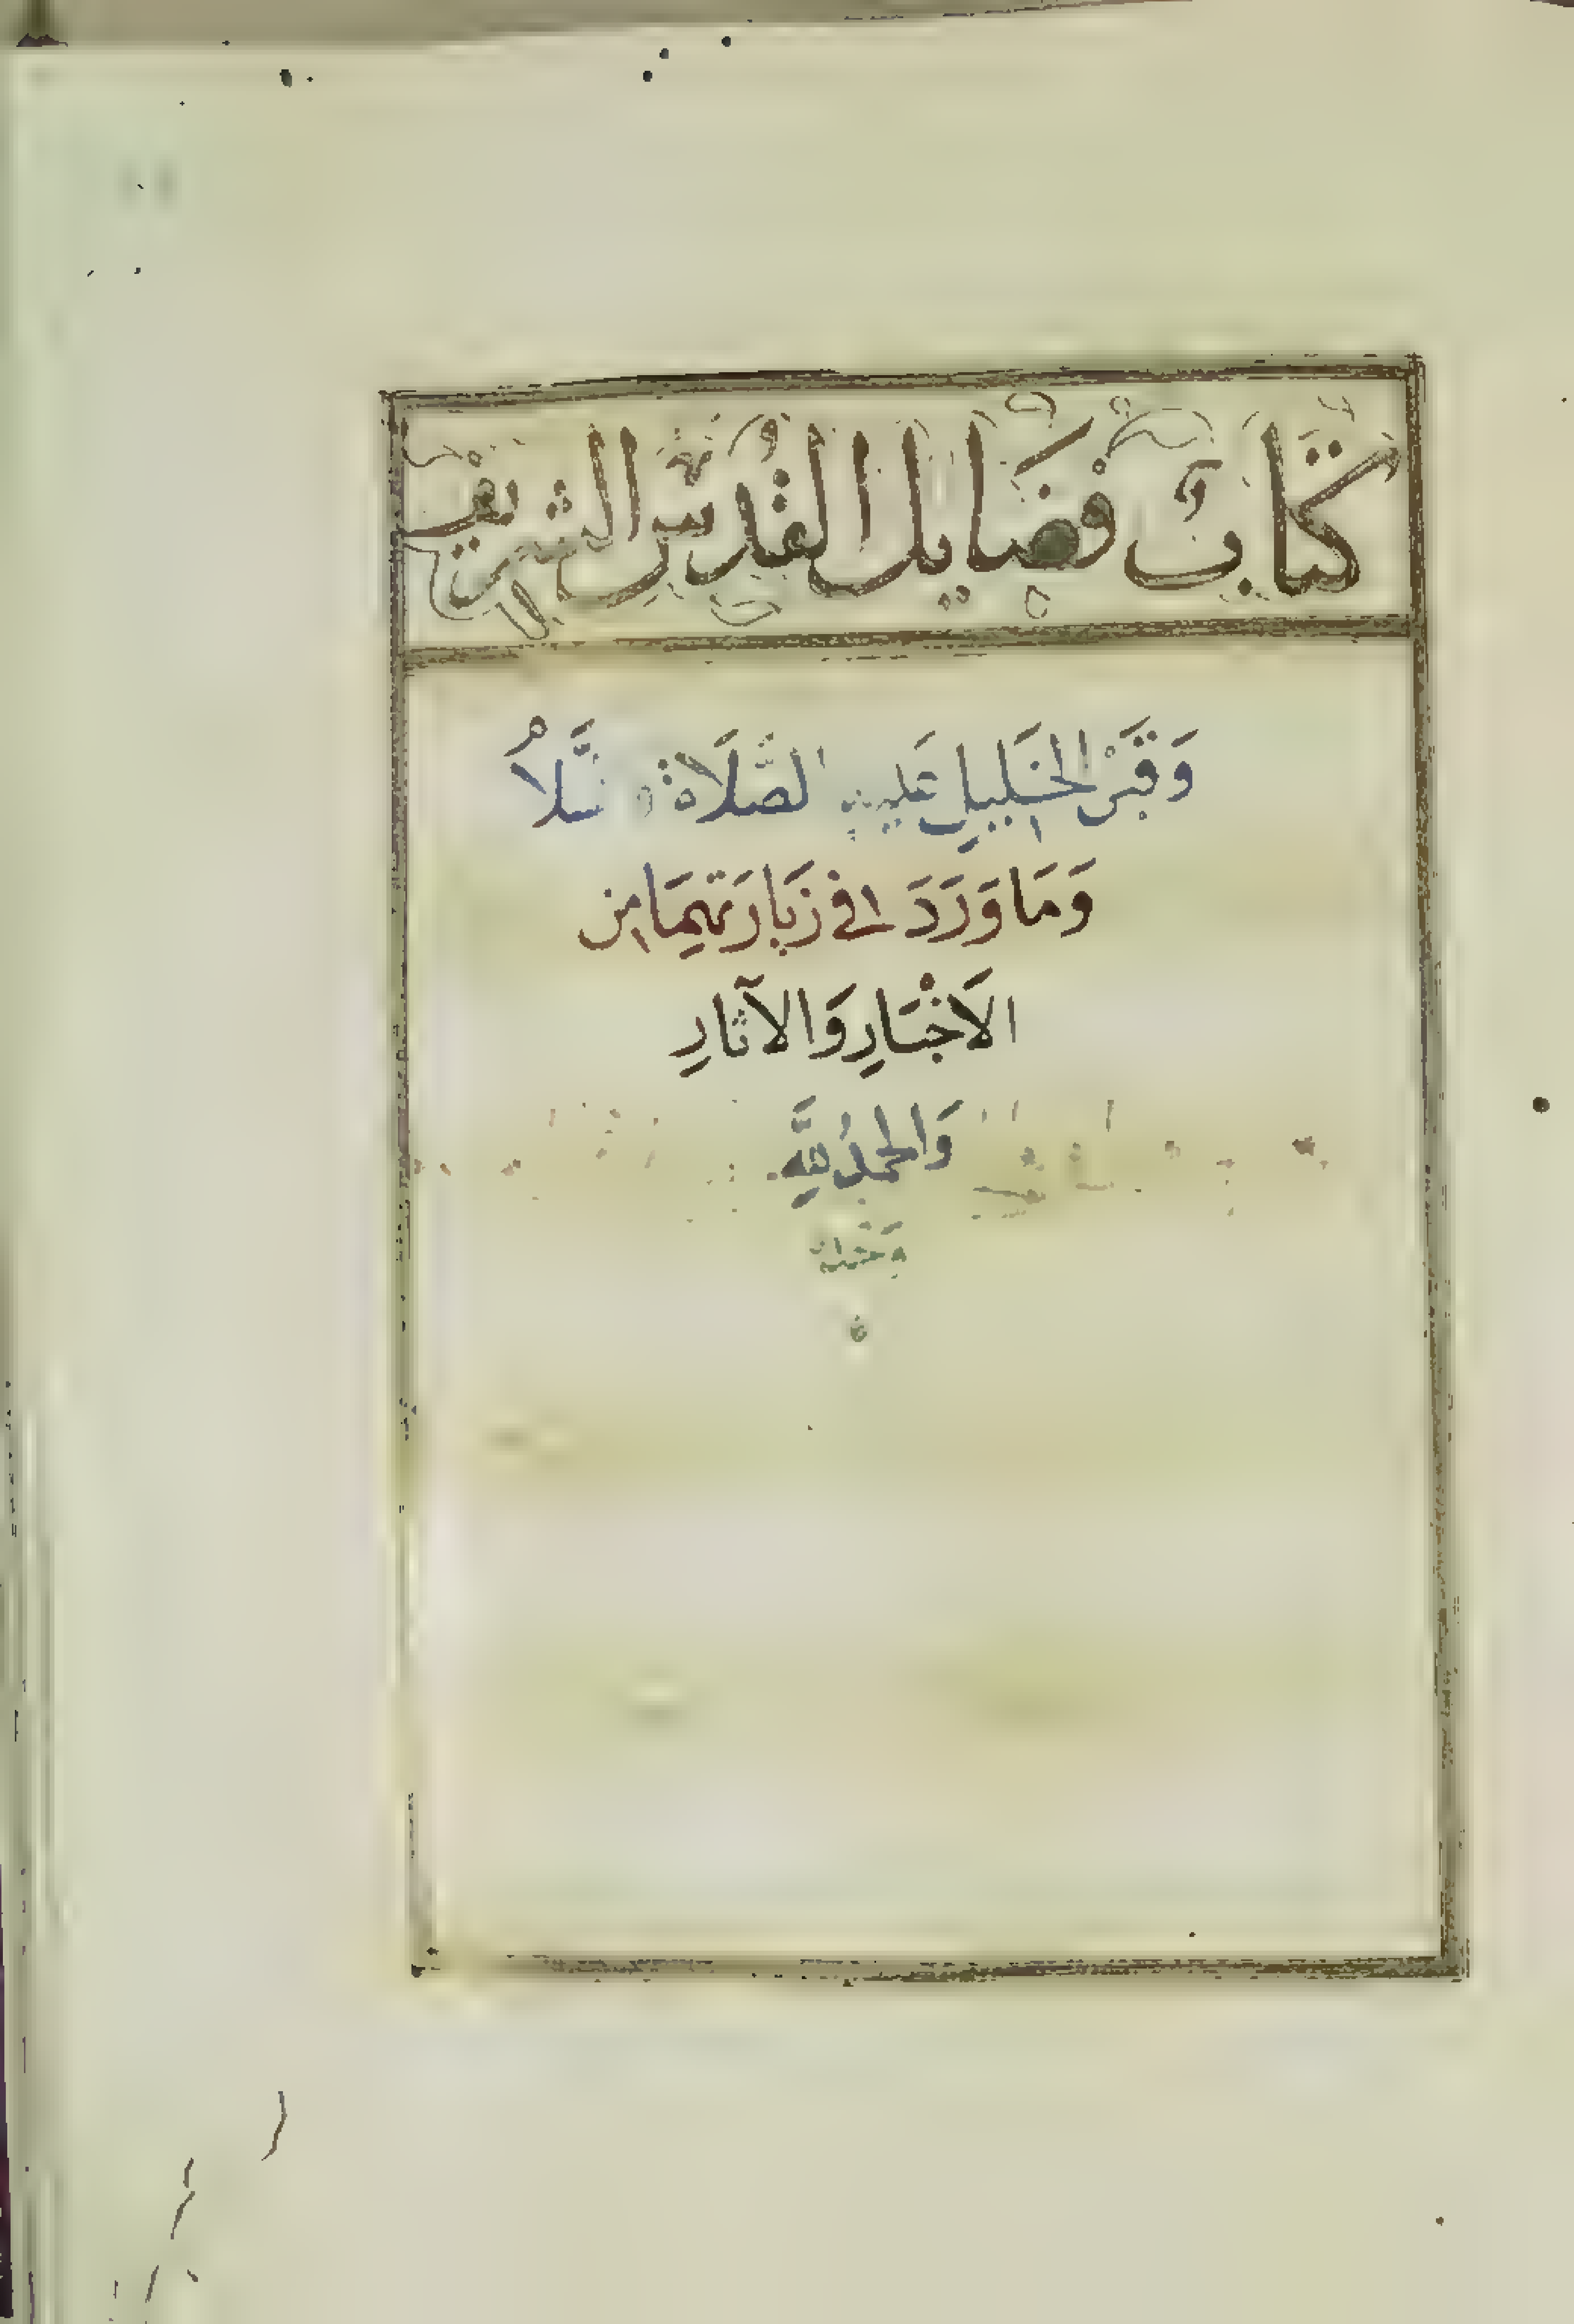 كتاب فضايل القدس الشريف
وَقَبْرِ الخَلِيلِ عَلَيْهِ الصَّلَاةُ وَالسَّلَامُ
وَمَا وَرَدَ في زِيَارَتِهِمَا مِن
الاَخْبَارِ وَالآثَارِ
وَالحَمْدُ لِلَّهِ
وَحْدَهُ